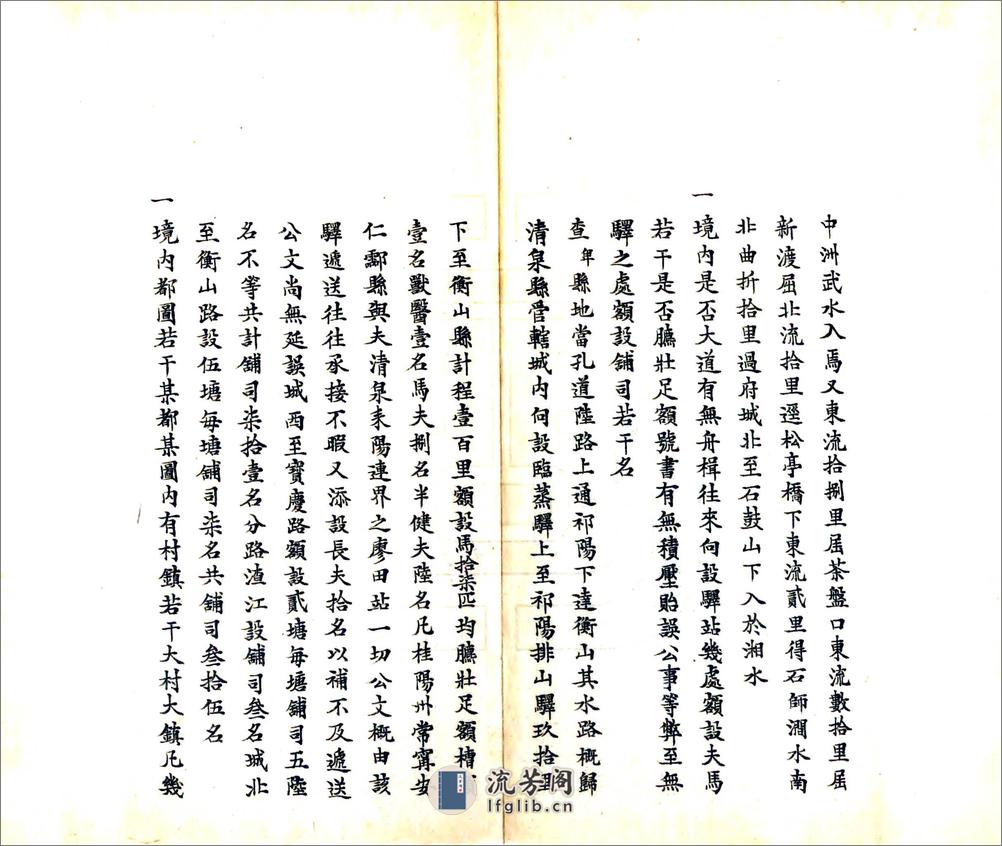 中洲武水入焉又東流拾捌里屈茶盤口東流數拾里屈
新渡屈北流拾里逕松亭橋下東流貳里得石師澗水南
北曲折拾里過府城北至石鼓山下入於湘水
一
境內是否大道有無舟楫往來向設驛站幾處額設夫馬
若干是否臕壯足額號書有無積壓貽誤公事等弊至無
驛之處額設舖司若干名
查卑縣地當孔道陸路上通祁陽下達衡山其水路概歸
清泉縣管轄城內向設臨蒸驛上至祁陽排山驛玖拾里
下至衡山縣計程壹百里額設馬拾柒匹均臕壯足額槽
壹名獸醫壹名馬夫捌名半健夫陸名凡桂陽州常寧安
仁酃縣與夫清泉耒陽連界之廖田站一切公文概由該
驛遞送往往承接不暇又添設長夫拾名以補不及遞送
公文尚無延誤城西至寶慶路額設貳塘每塘舖司五陸
名不等共計舖司柒拾壹名分路渣江設舖司叁名城北
至衡山路設伍塘每塘舖司柒名共舖司叁拾伍名
一
境內都圖若干某都某圖內有村鎮若干大村大鎮凡幾
流芳閣
lfglib.cn